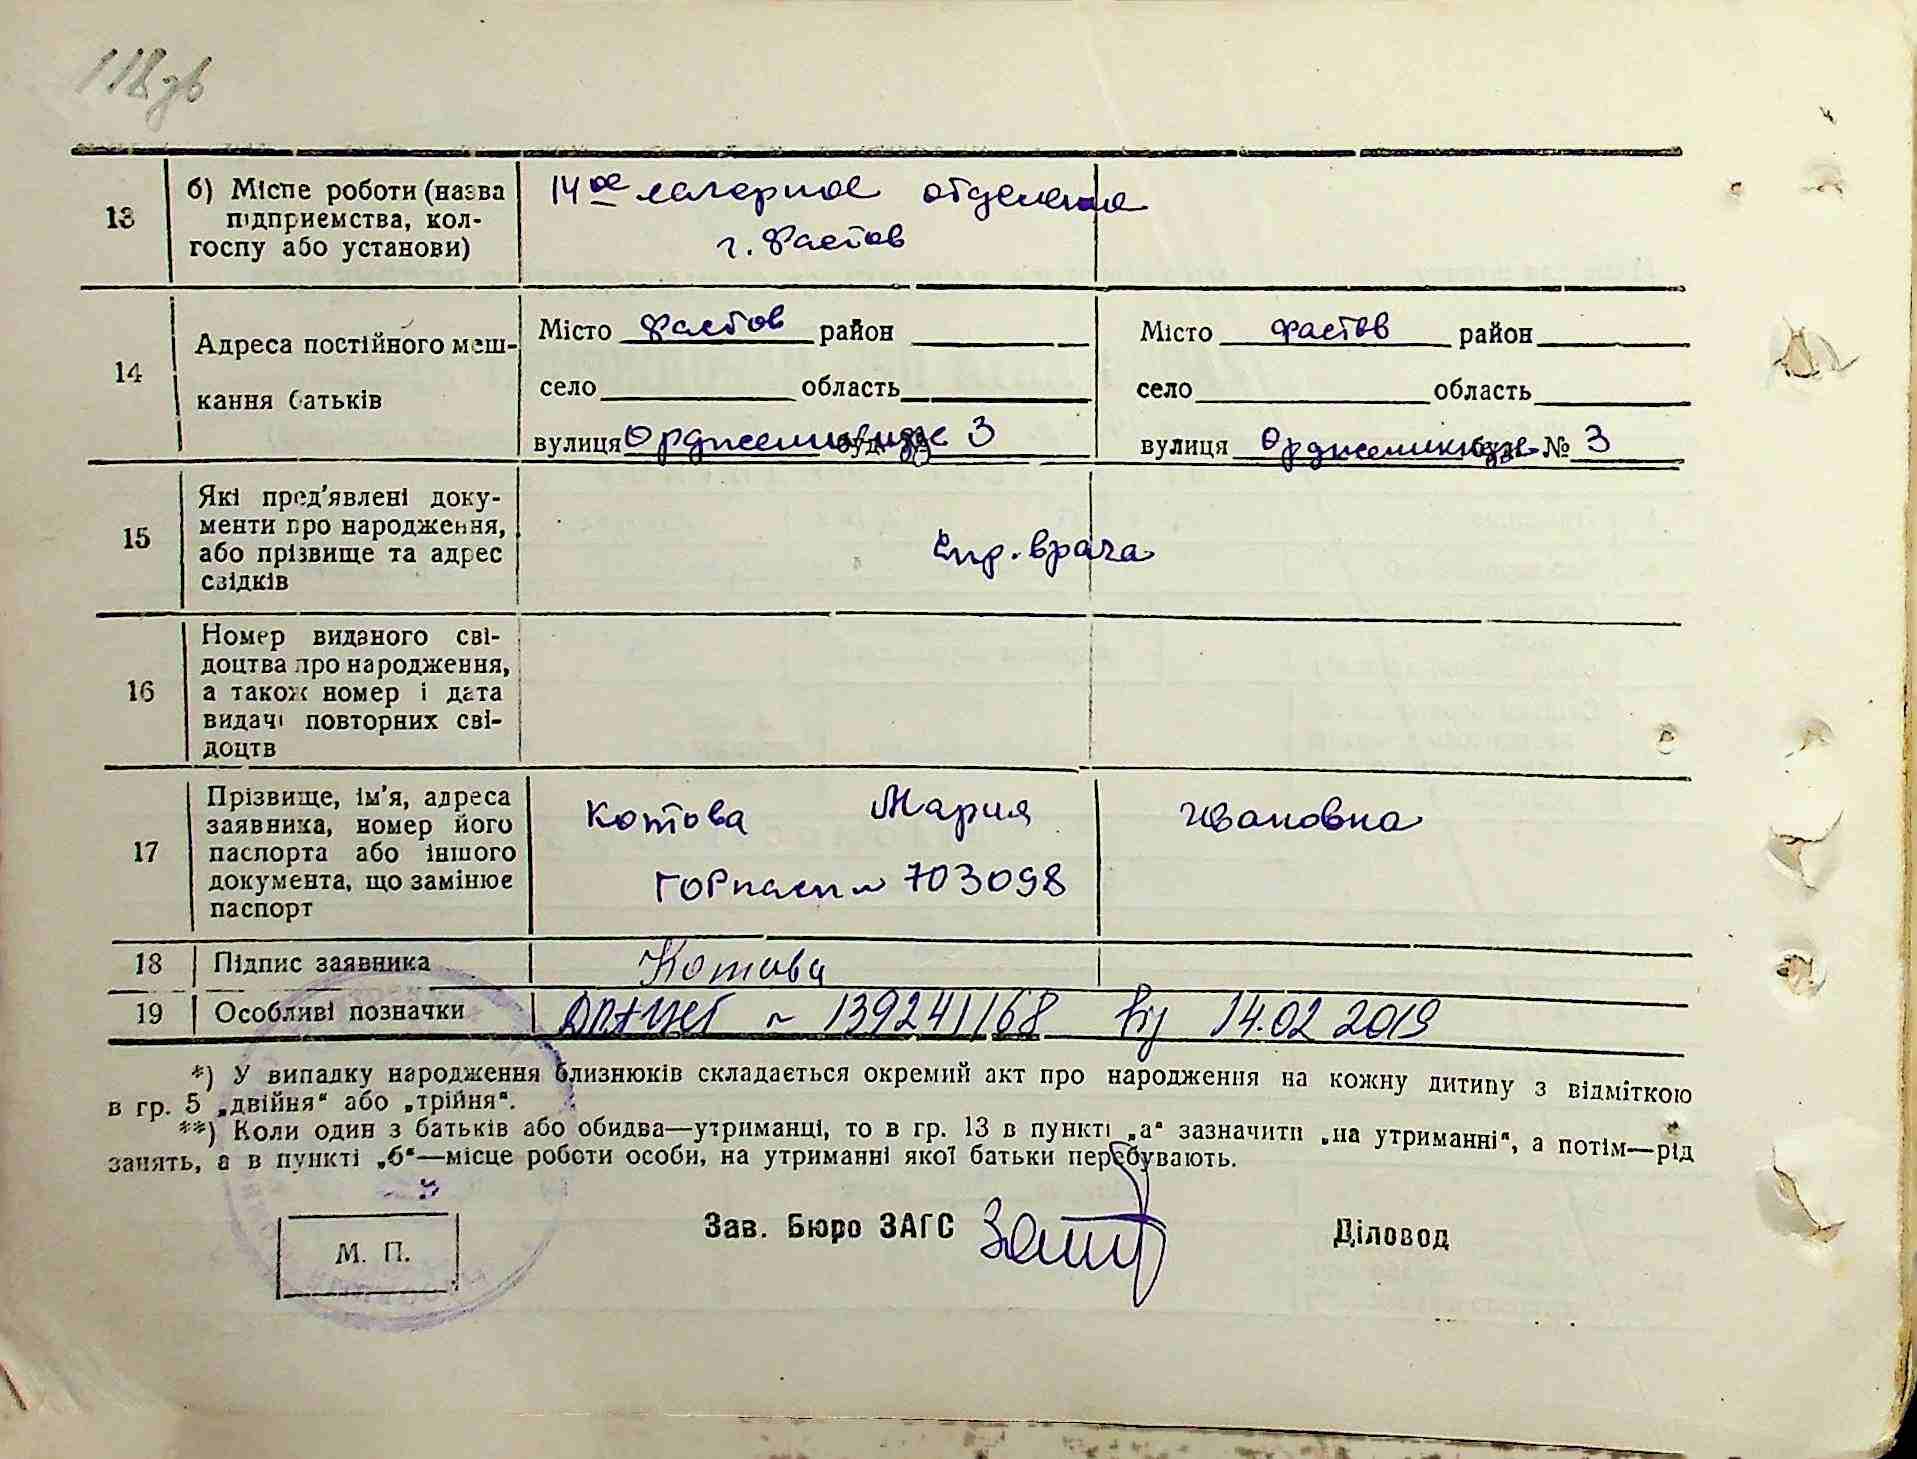 118 зв
13 б) Місце роботи (назва підприємства, колгоспу або установи) 14ое лагерное отделение
г. Фастов
14 Адреса постійного меш-
кання батьків
Місто Фастов район Місто Фастов район
село область село область
вулиця Орджоникидзе 3 вулиця Орджоникидзе буд. № 3
15 Які пред'явлені доку-
менти про народження,
або прізвище та адрес
свідків
Спр. врача
16 Номер виданого сві-
доцтва про народження,
а також номер і дата
видачі повторних сві-
доцтв
17 Прізвище, ім'я, адреса
заявника, номер його
паспорта або іншого
документа, що замінює
паспорт
Котова Мария Ивановна
703098
18 Підпис заявника Котова
19 Особливі позначки № 139241168 від 14.02 2019
*) У випадку народження близнюків складається окремий акт про народження на кожну дитину з відміткою
в гр. 5 „двійня“ або „трійня“.
**) Коли один з батьків або обидва—утриманці, то в гр. 13 в пункті „а“ зазначити „на утриманні“, а потім—рід
занять, а в пункті „б“—місце роботи особи, на утриманні якої батьки перебувають.
Зав. Бюро ЗАГС Діловод
М. П.